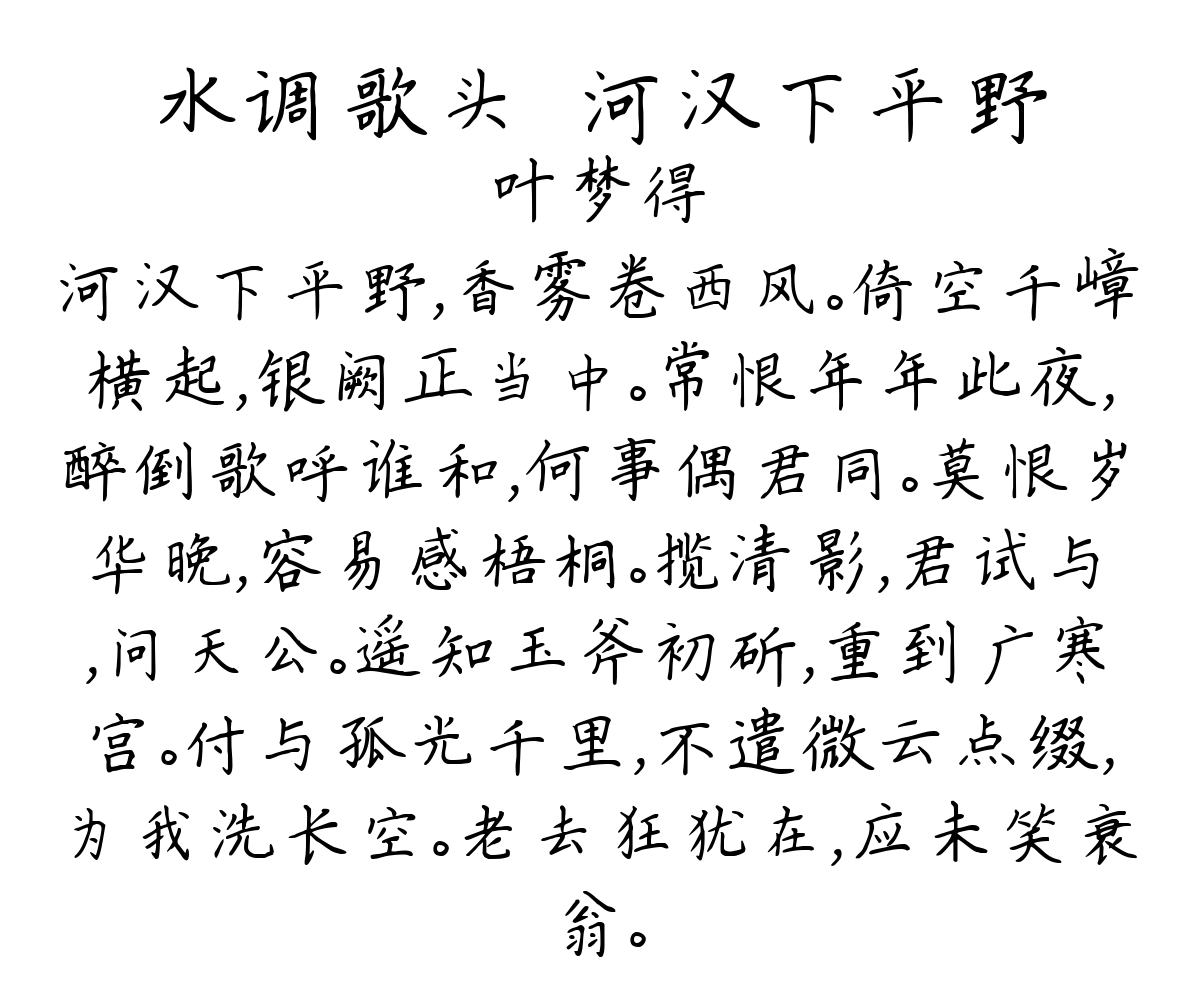 水调歌头 河汉下平野
叶梦得
河汉下平野,香雾卷西风。倚空千嶂
横起,银阙正当中。常恨年年此夜,
醉倒歌呼谁和,何事偶君同。莫恨岁
华晚,容易感梧桐。揽清影,君试与
,问天公。遥知玉斧初斫,重到广寒
宫。付与孤光千里,不遣微云点缀,
为我洗长空。老去狂犹在,应未笑衰
翁。